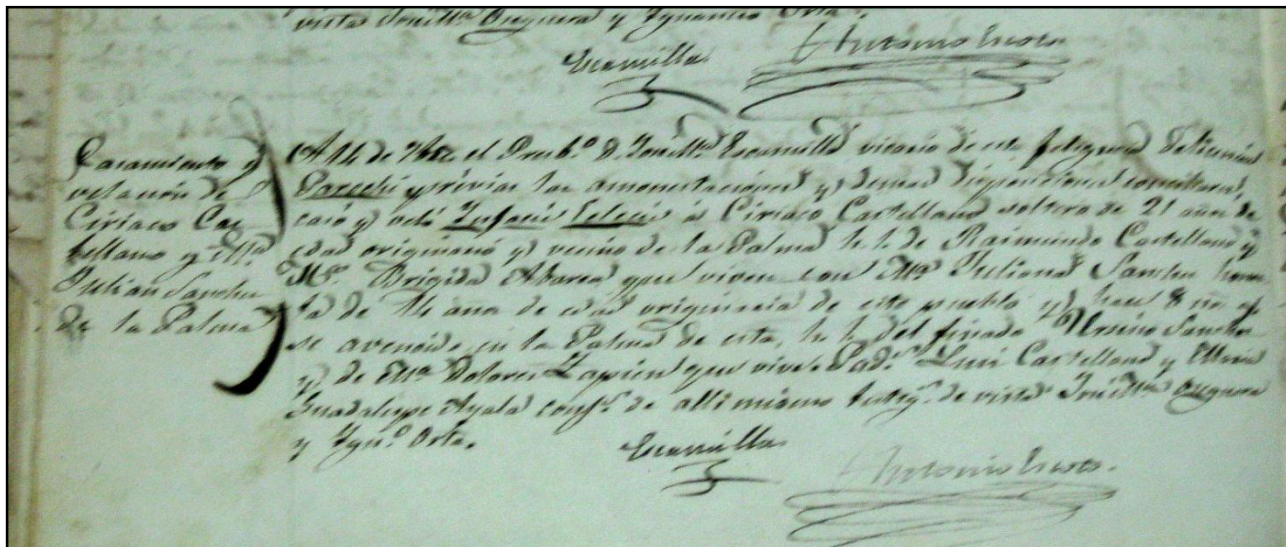 vista José Mª Oseguera y Ygnacio Orta.
Escamilla Antonio Escoto
Casamiento y
velación de
Ciriaco Cas
tellano y Mª
Julian Sanchez
de la Palma
A 14 de el Presbº D. José Mª Escamilla vicario de esta feligresia
Parochi previas las amonestaciones y demas disposiciones conciliares,
casó y veló Infacie Eclecie á Ciriaco Castellano soltero de 21 años de
edad originario y vecino de la Palma h. l. de Raimundo Castellano y
Mª Brigida Abarca que viven con Mª Juliana Sanchez donce
la de 14 años de edad originaria de este pueblo y hace 8 añs qe
se avencidó en la Palma de esta, h. l. del finado Ursino Sanchez
y de Mª Dolores Zapien que vive. Padˢ Luis Castellano y Maria
Guadalupe Ayala de alli mismo testigˢ de vista José Mª Oseguera
y Ygnº Orta.
Escamilla Antonio Escoto.